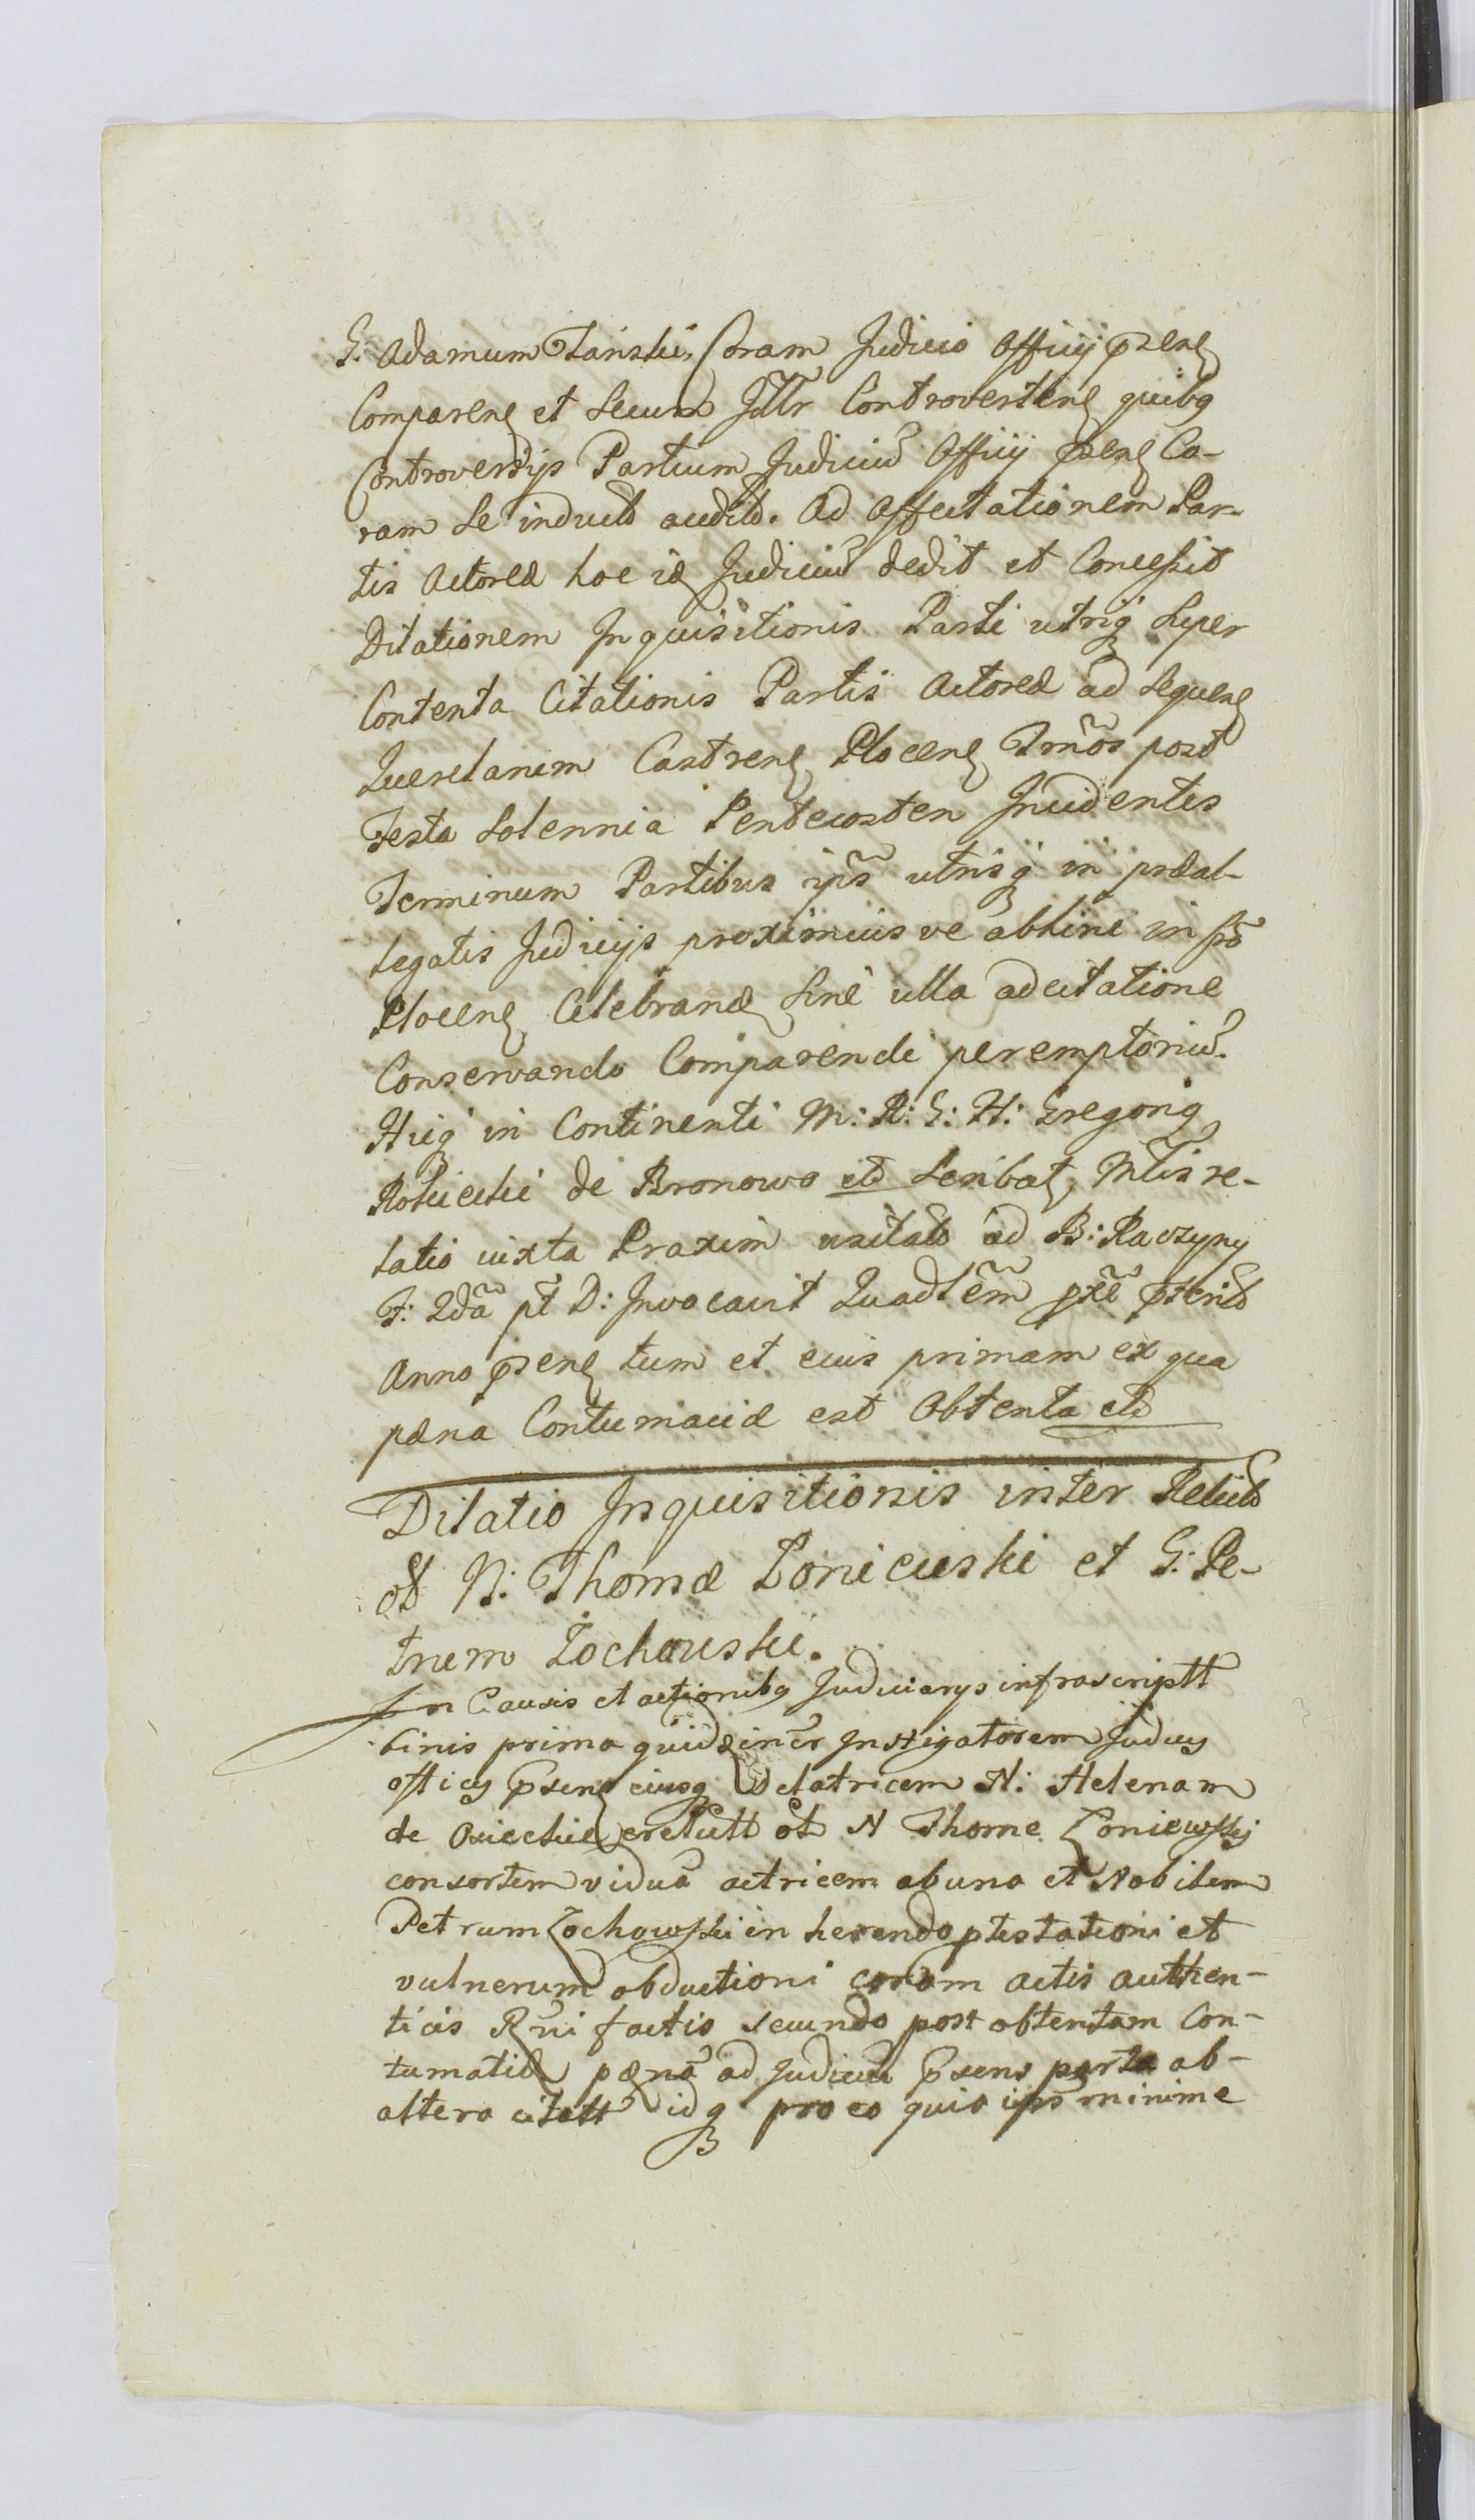 G: Adamum Tański, Coram Judicio Officij pzenꝭ
Comparenꝭ et Secum Jttr Controvertenꝭ quibq
Controversijs Partium Judiciũ Officij pzenꝭ Co-
ram Se inducto audito. Ad Affectationem Par-
tis Actoreæ hoc idꝭ Judiciũ dedit et Concessit
Dilationem Inquisitionis Parti utriq Super
Contenta Citationis Partis Actoreæ ad Sequenꝭ
Querelarum Castrenꝭ Plocenꝭ Tmños post
Festa Solennia Pentecosten Incidentes
Terminum Partibus ips̃ utrisq in præal-
legatis Judicijs proximius ve abhinc in fõ
Plocenꝭ Celebrandꝭ Sine ulla adcitatione
Conservando Comparendi peremptoriũ.
Huiq in Continenti M: R: G: H: Gregoriq
Rościcki de Bronowo etc Scribatꝭ, Mltis re-
latio iuxta Praxim usitato ad B: Raczyny
F: 2dã pt D: Invocavit Quadłem pxẽ pzterito
Anno pzenꝭ tum et eius primam ex qua
pæna Contumaciæ est Obtenta etc
Dilatio Inquisitionis inter Relicto
ol N: Thomæ Łoniewski et G: Pe-
trum Żochowski.
In Causis et actionibq Judiciarys infrascriptt
binis prima quidꝭ incr Instigatorem Judicy
officy Pxens eiusq Delatricem N: Helenam
de Osiechie relictt ol N Thome Łoniewski
consortem viduã actricem ab una et Nobilem
Petrum Żochowski in herendo ptestationi et
vulnerum obductioni coram actis authen-
ticis Rvni factis secundo post obtentam Con-
tumatiæ pænã ad Judiciũ Pxens parte ab-
altera citatt idq pro eo quia ips minime